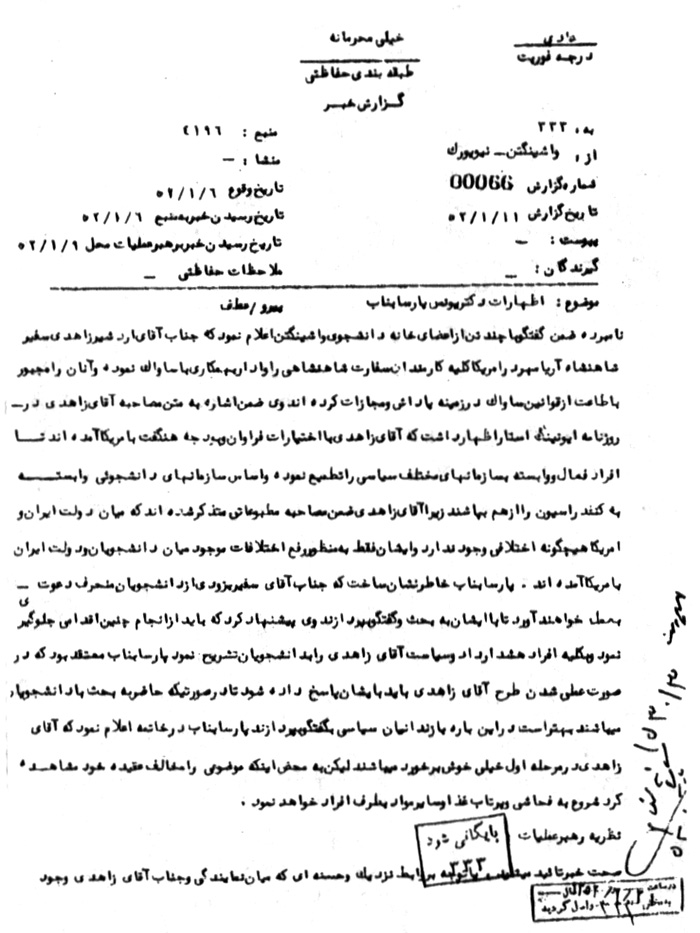 خیلی محرمانه
عادی
درجه فوریت
طبقه بندی حفاظتی
گزارش خبر
به، ۳۳۳
منبع : ٤١٩٦
از، واشینگتن ـ نیویورك
منشاء : –
شماره گزارش 00066
تاریخ وقوع ۵۲/۱/۶
تاریخ گزارش ۵۲/۱/۱۱
تاریخ رسیدن خبر به منبع ۵۲/۱/۶
پیوست : –
تاریخ رسیدن خبر برهبر عملیات محل ۵۲/۱/۹
گیرندگان : –
ملاحظات حفاظتی –
موضوع : اظهارات دکتر یونس پارسا بناب
پیرو / عطف
نامبرده ضمن گفتگو با چند تن از اعضای خانه دانشجوی واشینگتن اعلام نمود که جناب آقای اردشیر زاهدی سفیر
شاهنشاه آریامهر در امریکا کلیه کارمندان سفارت شاهنشاهی را وادار بهمکاری با ساواك نموده و آنان را مجبور
باطاعت از قوانین ساواك در زمینه پاداش و مجازات کرده اند وی ضمن اشاره به متن مصاحبه آقای زاهدی در ـ
روزنامه ایونینگ استار اظهار داشت که آقای زاهدی با اختیارات فراوان و بودجه هنگفت بامریکا آمده اند تا
افراد فعال و وابسته بسازمانهای مختلف سیاسی را تطمیع نموده و اساس سازمانهای دانشجوئی وابسته
به کنفدراسیون را از هم بپاشند زیرا آقای زاهدی ضمن مصاحبه مطبوعاتی متذکر شده اند که میان دولت ایران و
امریکا هیچگونه اختلافی وجود ندارد و ایشان فقط به منظور رفع اختلافات موجود میان دانشجویان و دولت ایران
بامریکا آمده اند . پارسا بناب خاطرنشان ساخت که جناب آقای سفیر بزودی از دانشجویان منحرف دعوت ـ
بعمل خواهند آورد تا با ایشان به بحث و گفتگو بپردازند وی پیشنهاد کرد که باید از انجام چنین اقدامی جلوگیری
نمود و بکلیه افراد هشدار داد و سیاست آقای زاهدی را به دانشجویان تشریح نمود پارسا بناب معتقد بود که در
صورت عملی شدن طرح آقای زاهدی باید بایشان پاسخ داده شود تا در صورتیکه حاضر به بحث با دانشجویان
میباشند بهتر است در این باره با زندانیان سیاسی بگفتگو بپردازند پارسا بناب در خاتمه اعلام نمود که آقای
زاهدی در مرحله اول خیلی خوش برخورد میباشند لیکن به محض اینکه موضوعی را مخالف عقیده خود مشاهده
کرد شروع به فحاشی و پرتاب غذا و سایر مواد بطرف افراد خواهد نمود .
نظریه رهبر عملیات
بایگانی شود
۳۳۳
صحت خبر تائید میشود با توجه به روابط نزدیك و حسنه ای که میان نمایندگی و جناب آقای زاهدی وجود